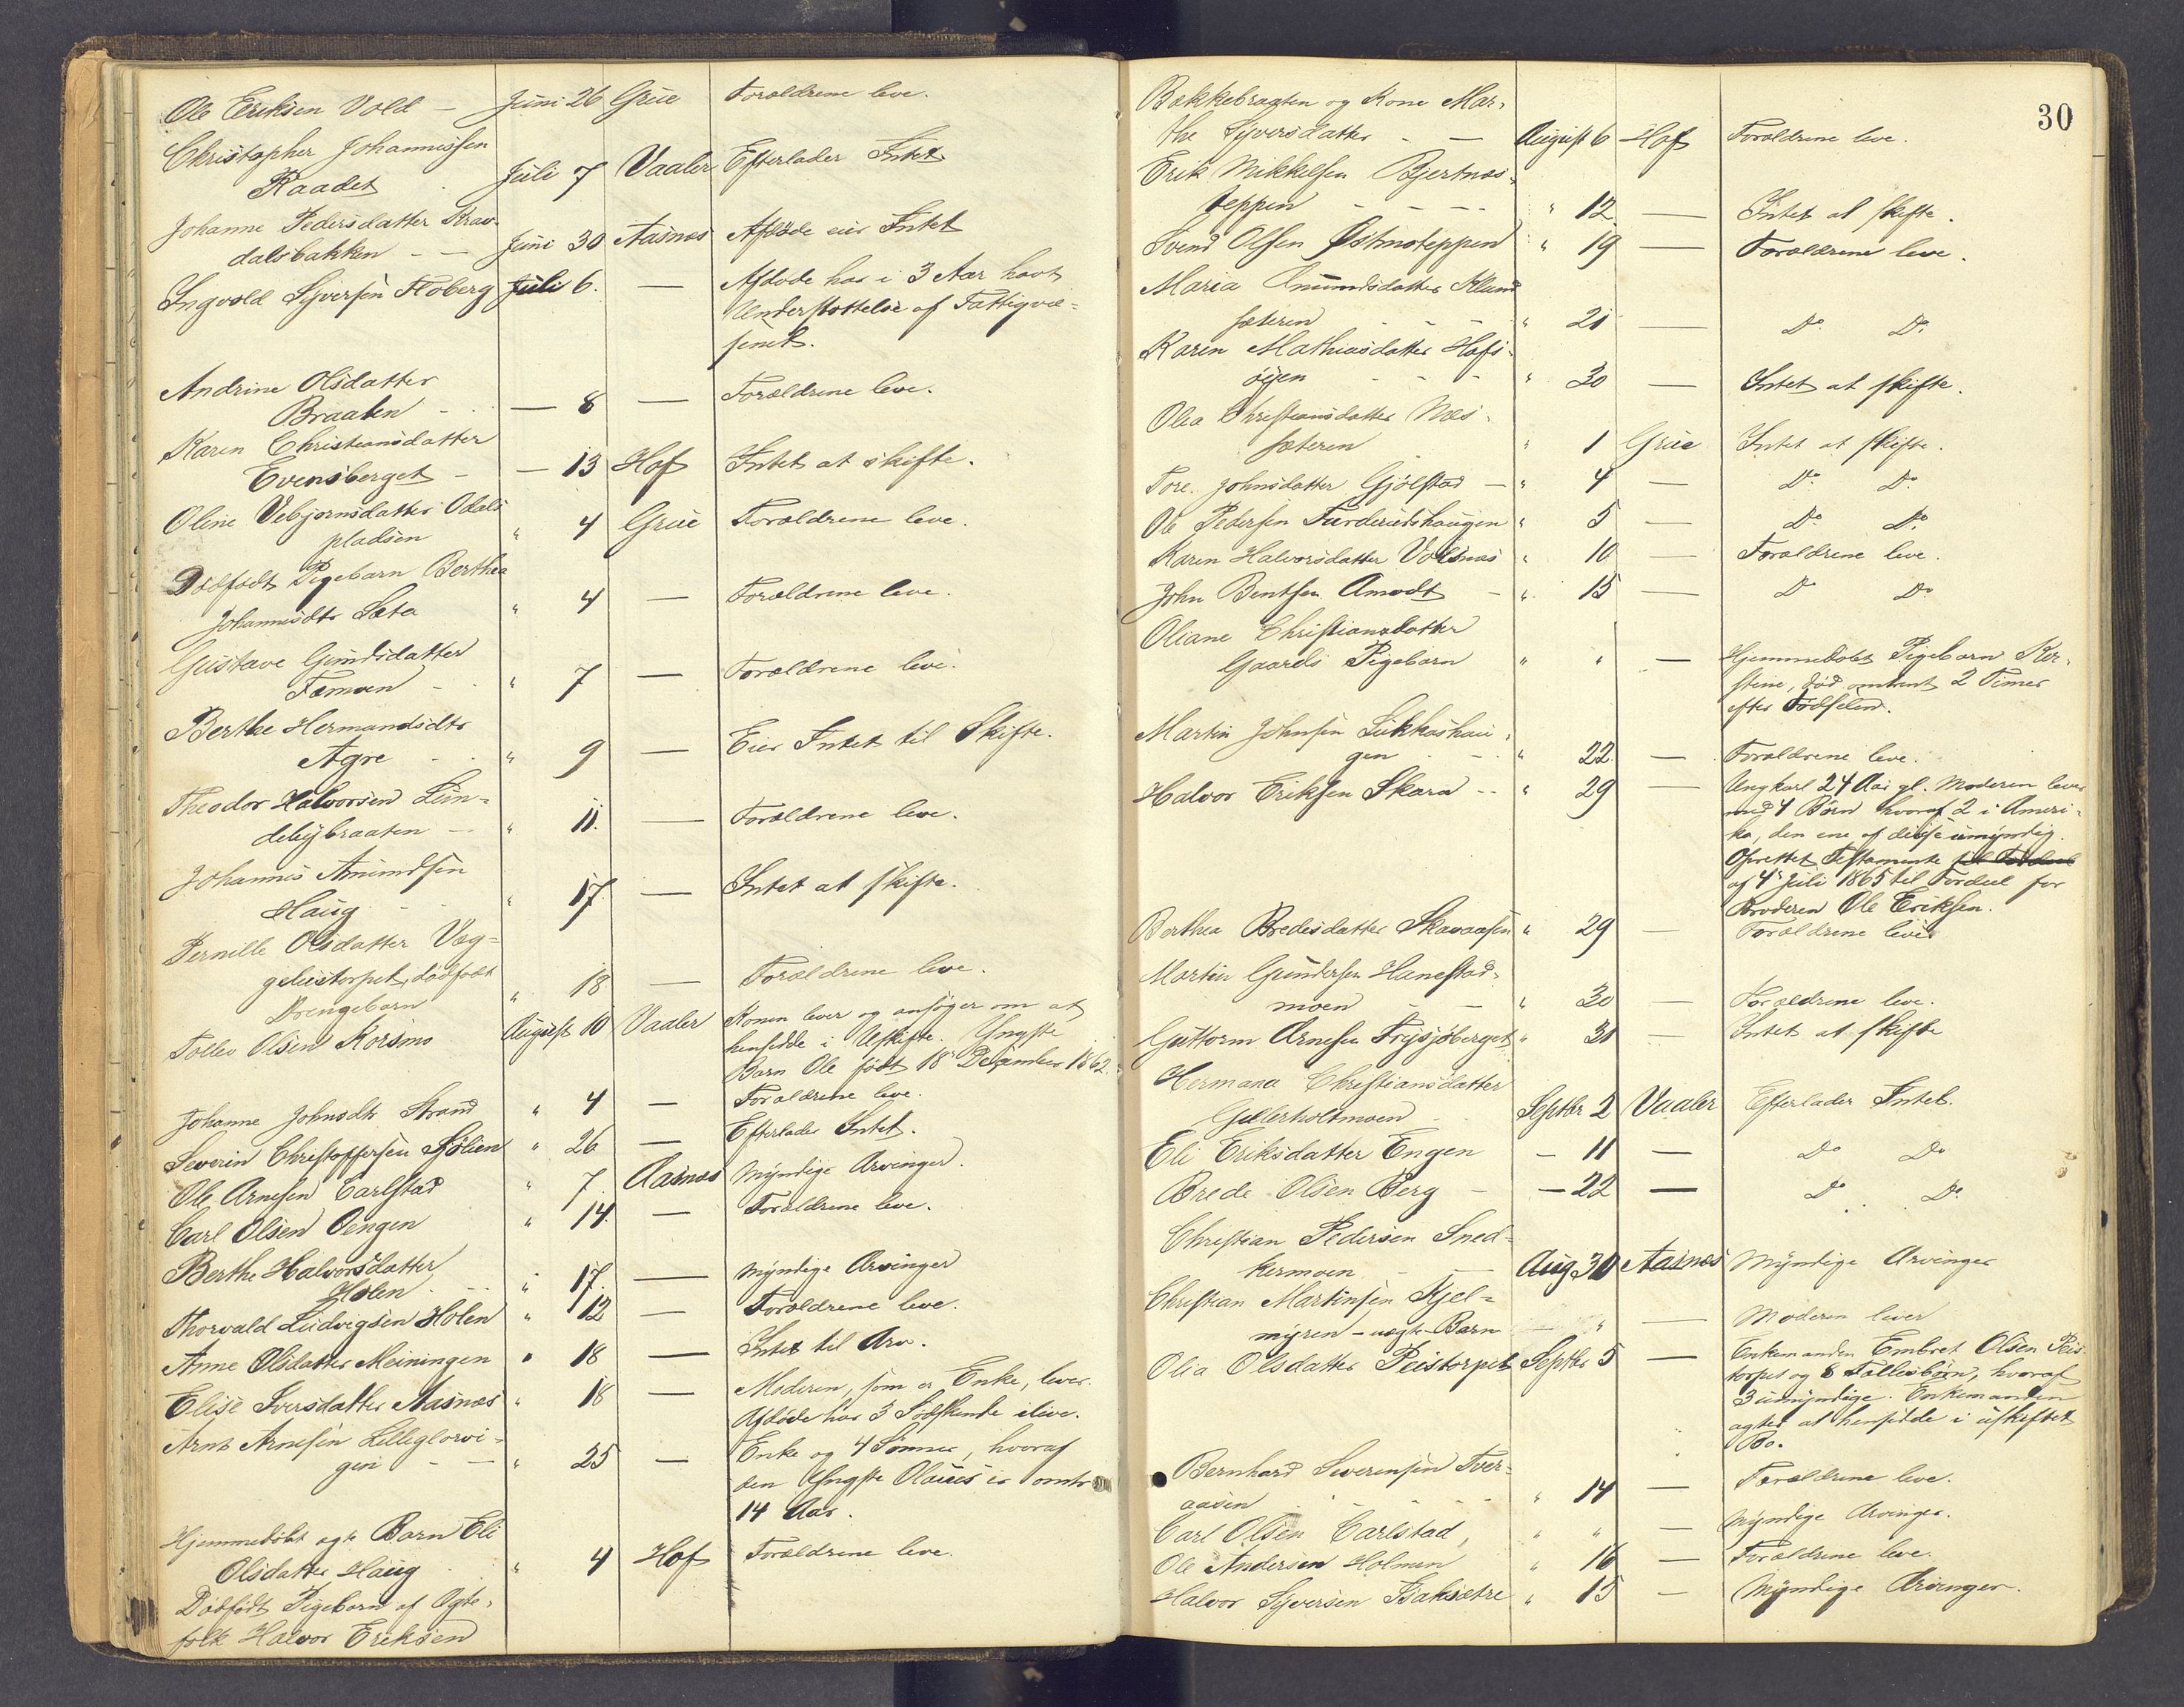 Ole Eriksen Vold — Juni 26 Grue Forældrene leve.
Christopher Johannissen
Raadet Juli 7 Vaaler Efterlader Intet
Johanne Pedersdatter Krav-
dalsbakken — Juni 30 Aasnæs Afdøde eier Intet
Ingvold Syversen Floberg Juli 6. — Afdøde har i 3 Aar havt
Understøttelse af Fattigvæ-
senet.
Andrine Olsdatter
Braaten — 8 — Forældrene leve.
Karen Christiansdatter
Evensberget — 13 Hof Intet at skifte.
Oline Vebjørnsdatter Odals
pladsen " 4 Grue Forældrene leve.
Dødfødt Pigebarn Berthea
Johannesdtr Sæta " 4 — Forældrene leve.
Gustave Gundsdatter
Tæmoen " 7 — Forældrene leve.
Berthe Hermandsdtr
Agre " 9 — Eier Intet til Skifte.
Theodor Halvorsen Lun-
debybraaten — " 11. — Forældrene leve.
Johannes Amundsen
Haug " 17. — Intet at skifte.
Pernille Olsdatter Væg-
geliestorpet, dødfødt
Drengebarn " 18 — Forældrene leve.
Tollev Olsen Korsmo August 10 Vaaler Konen lever og ansøger om at
hensidde i Uskifte. Yngste
Barn Ole født 18 December 1862.
Johanne Johnsdtr Strand " 4 — Forældrene leve.
Severin Christoffersen Sjølien " 26 — Efterlader Intet.
Ole Arnesen Carlstad " 7. Aasnæs Myndige Arvinger.
Carl Olsen Oengen " 14. — Forældrene leve.
Berthe Halvorsdatter
Holen " 17. — Myndige Arvinger
Thorvald Ludvigsen Holen " 12 — Forældrene leve.
Anne Olsdatter Meiningen " 18 — Intet til Arv.
Elise Iversdatter Aasnæs " 18 — Moderen, som er Enke, lever.
Afdøde har 3 Sødskende ilive.
Arne Arnesen Lilleglorvi-
gen — " 25 — Enke og 4 Sønner, hvoraf
den Yngste Olaus er omtr
14 Aar.
Hjemmedøbt ægte Barn Eli
Olsdatter Haug " 4 Hof Forældrene leve.
Dødfødt Pigebarn af Ægte-
folk Halvor Eriksen
30
Bakkebraaten og Kone Mar-
the Syversdatter — August 6 Hof Forældrene leve.
Erik Mikkelsen Bjertnæs-
teppen " 12 — Intet at skifte.
Svend Olsen Østmoteppen " 19 — Forældrene leve.
Maria Amundsdatter Klund
sæteren " 21 — Do Do
Karen Mathiasdatter Hofs-
øyen " 30 — Intet at skifte.
Olea Christiansdatter Næs-
sæteren " 1 Grue Intet at skifte.
Tore Johnsdatter Gjølstad — " 4 — Do Do
Ole Pedersen Furderudshaugen " 5 — Do Do
Karen Halvorsdatter Voldnæs " 10 — Forældrene leve.
John Bentsen Amodt — " 15 — Do Do
Oliane Christiansdatter
Gaards Pigebarn " " — Hjemmedøbt Pigebarn Ker-
stine, død omtrent 2 Timer
efter Fødselen.
Martin Johnsen Lukkashau-
gen " 22 — Forældrene leve.
Halvor Eriksen Skara " 29 — Ungkarl 24 Aar gl. Moderen lever
med 4 Børn hvoraf 2 i Ameri-
ka, den ene af disse umyndig.
Oprettet Testamente til Fordeel
af 4 Juli 1865 til Fordeel for
Broderen Ole Eriksen.
Berthea Bredesdatter Skavaasen " 29 — Forældrene leve.
Martin Gundersen Hanestad-
moen " 30 — Forældrene leve.
Guttorm Arnesen Frysjøberget " 31 — Intet at skifte
Hermana Christiansdatter
Gullerholtmoen Septbr 2 Vaaler Efterlader Intet.
Eli Eriksdatter Engen — 11 — Do Do
Brede Olsen Berg — 22 — Do Do
Christian Pedersen Sned-
kermoen — Aug 30 Aasnæs Myndige Arvinger
Christian Martinsen Kjel-
myren — uægte Barn — " — Moderen lever
Olia Olsdatter Peistorpet Septbr 5 — Enkemanden Embret Olsen Peis
torpet og 8 Fællesbørn, hvoraf
3 umyndige. Enkemanden
agter at hensidde i uskiftet
Bo.
Bernhard Severinsen Tver-
aasen " 14 — Forældrene leve.
Carl Olsen Carlstad, " " — Myndige Arvinger.
Ole Andersen Holmen " 16 — Forældrene leve.
Halvor Syversen Baksætre " 15 — Myndige Arvinger.